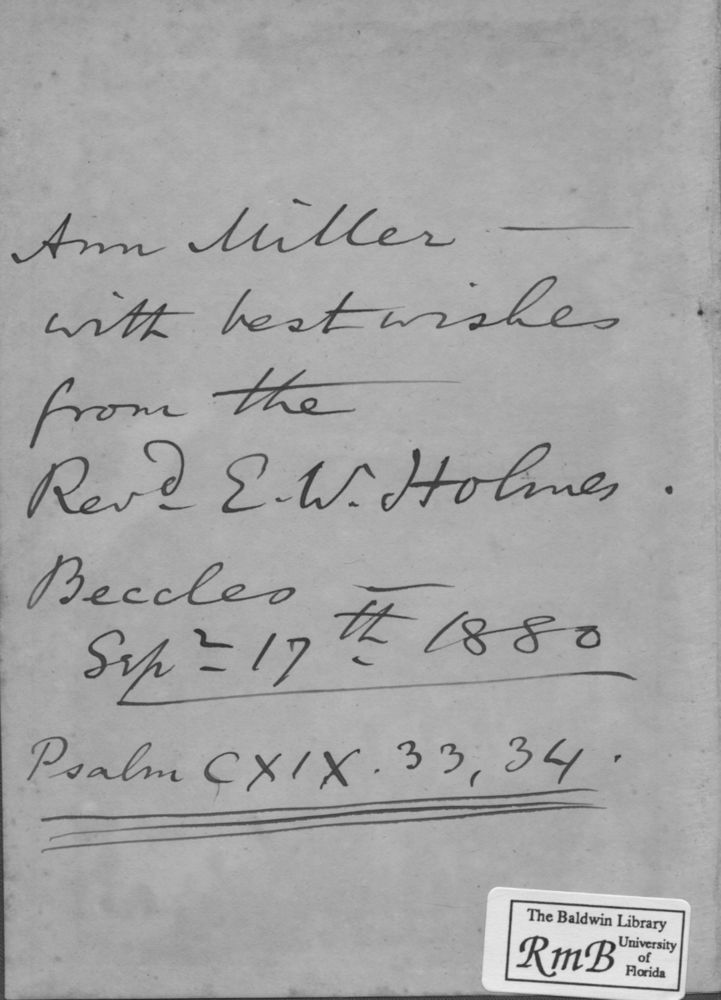 Ann Miller —
with best wishes
from the
Revd E. W. Holmes.
Beccles —
Sepr 17th 1880
Psalm CXIX. 33, 34.
The Baldwin Library
RmB University
of
Florida